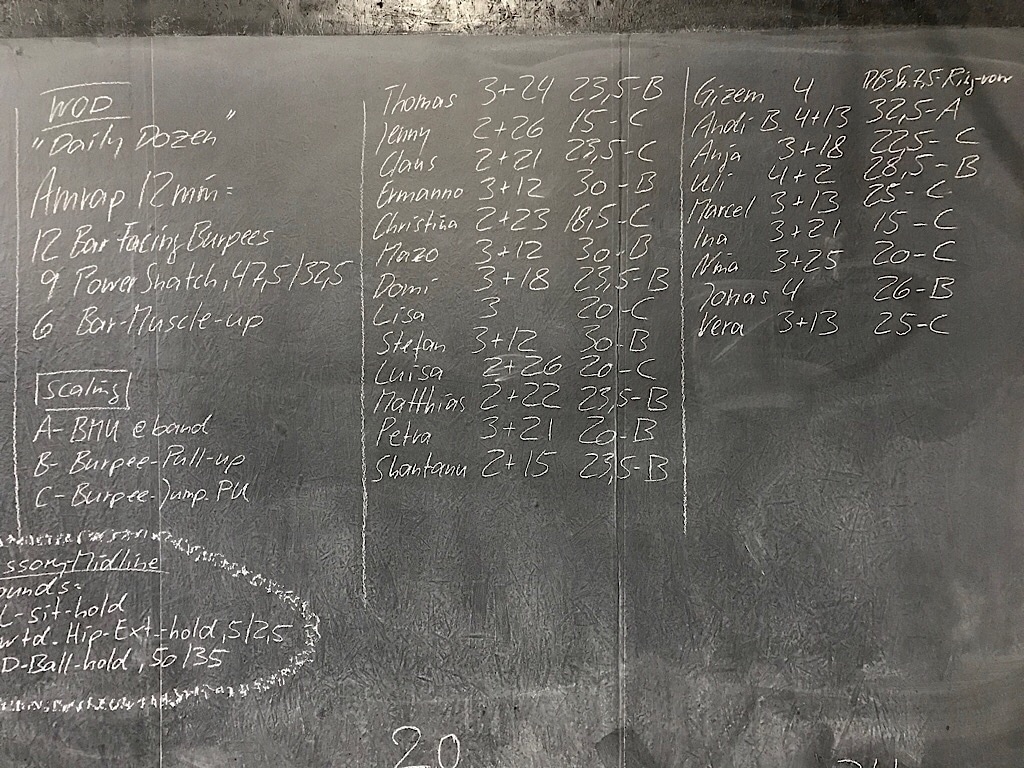 WOD
"Daily Dozen"
Amrap 12min:
12 Bar Facing Burpees
9 Power Snatch, 47,5/32,5
6 Bar-Muscle-up
Scaling
A-BMU @ band
B- Burpee-Pull-up
C- Burpee-Jump. PU
ssory-Midline
ounds:
L-sit-hold
wtd. Hip-Ext-hold, 5/2,5
D-Ball-hold, 50/35
Thomas 3+24 23,5-B
Jenny 2+26 15-C
Claus 2+21 23,5-C
Ermanno 3+12 30-B
Christina 2+23 18,5-C
Mazo 3+12 30-B
Domi 3+18 23,5-B
Lisa 3 20-C
Stefan 3+12 30-B
Luisa 2+26 20-C
Matthias 2+22 23,5-B
Petra 3+21 20-B
Shantanu 2+15 23,5-B
20
Gizem 4
Andi B. 4+13 32,5-A
Anja 3+18 22,5-C
Uli 4+2 28,5-B
Marcel 3+13 25-C
Ina 3+21 15-C
Nina 3+25 20-C
Jonas 4 26-B
Vera 3+13 25-C